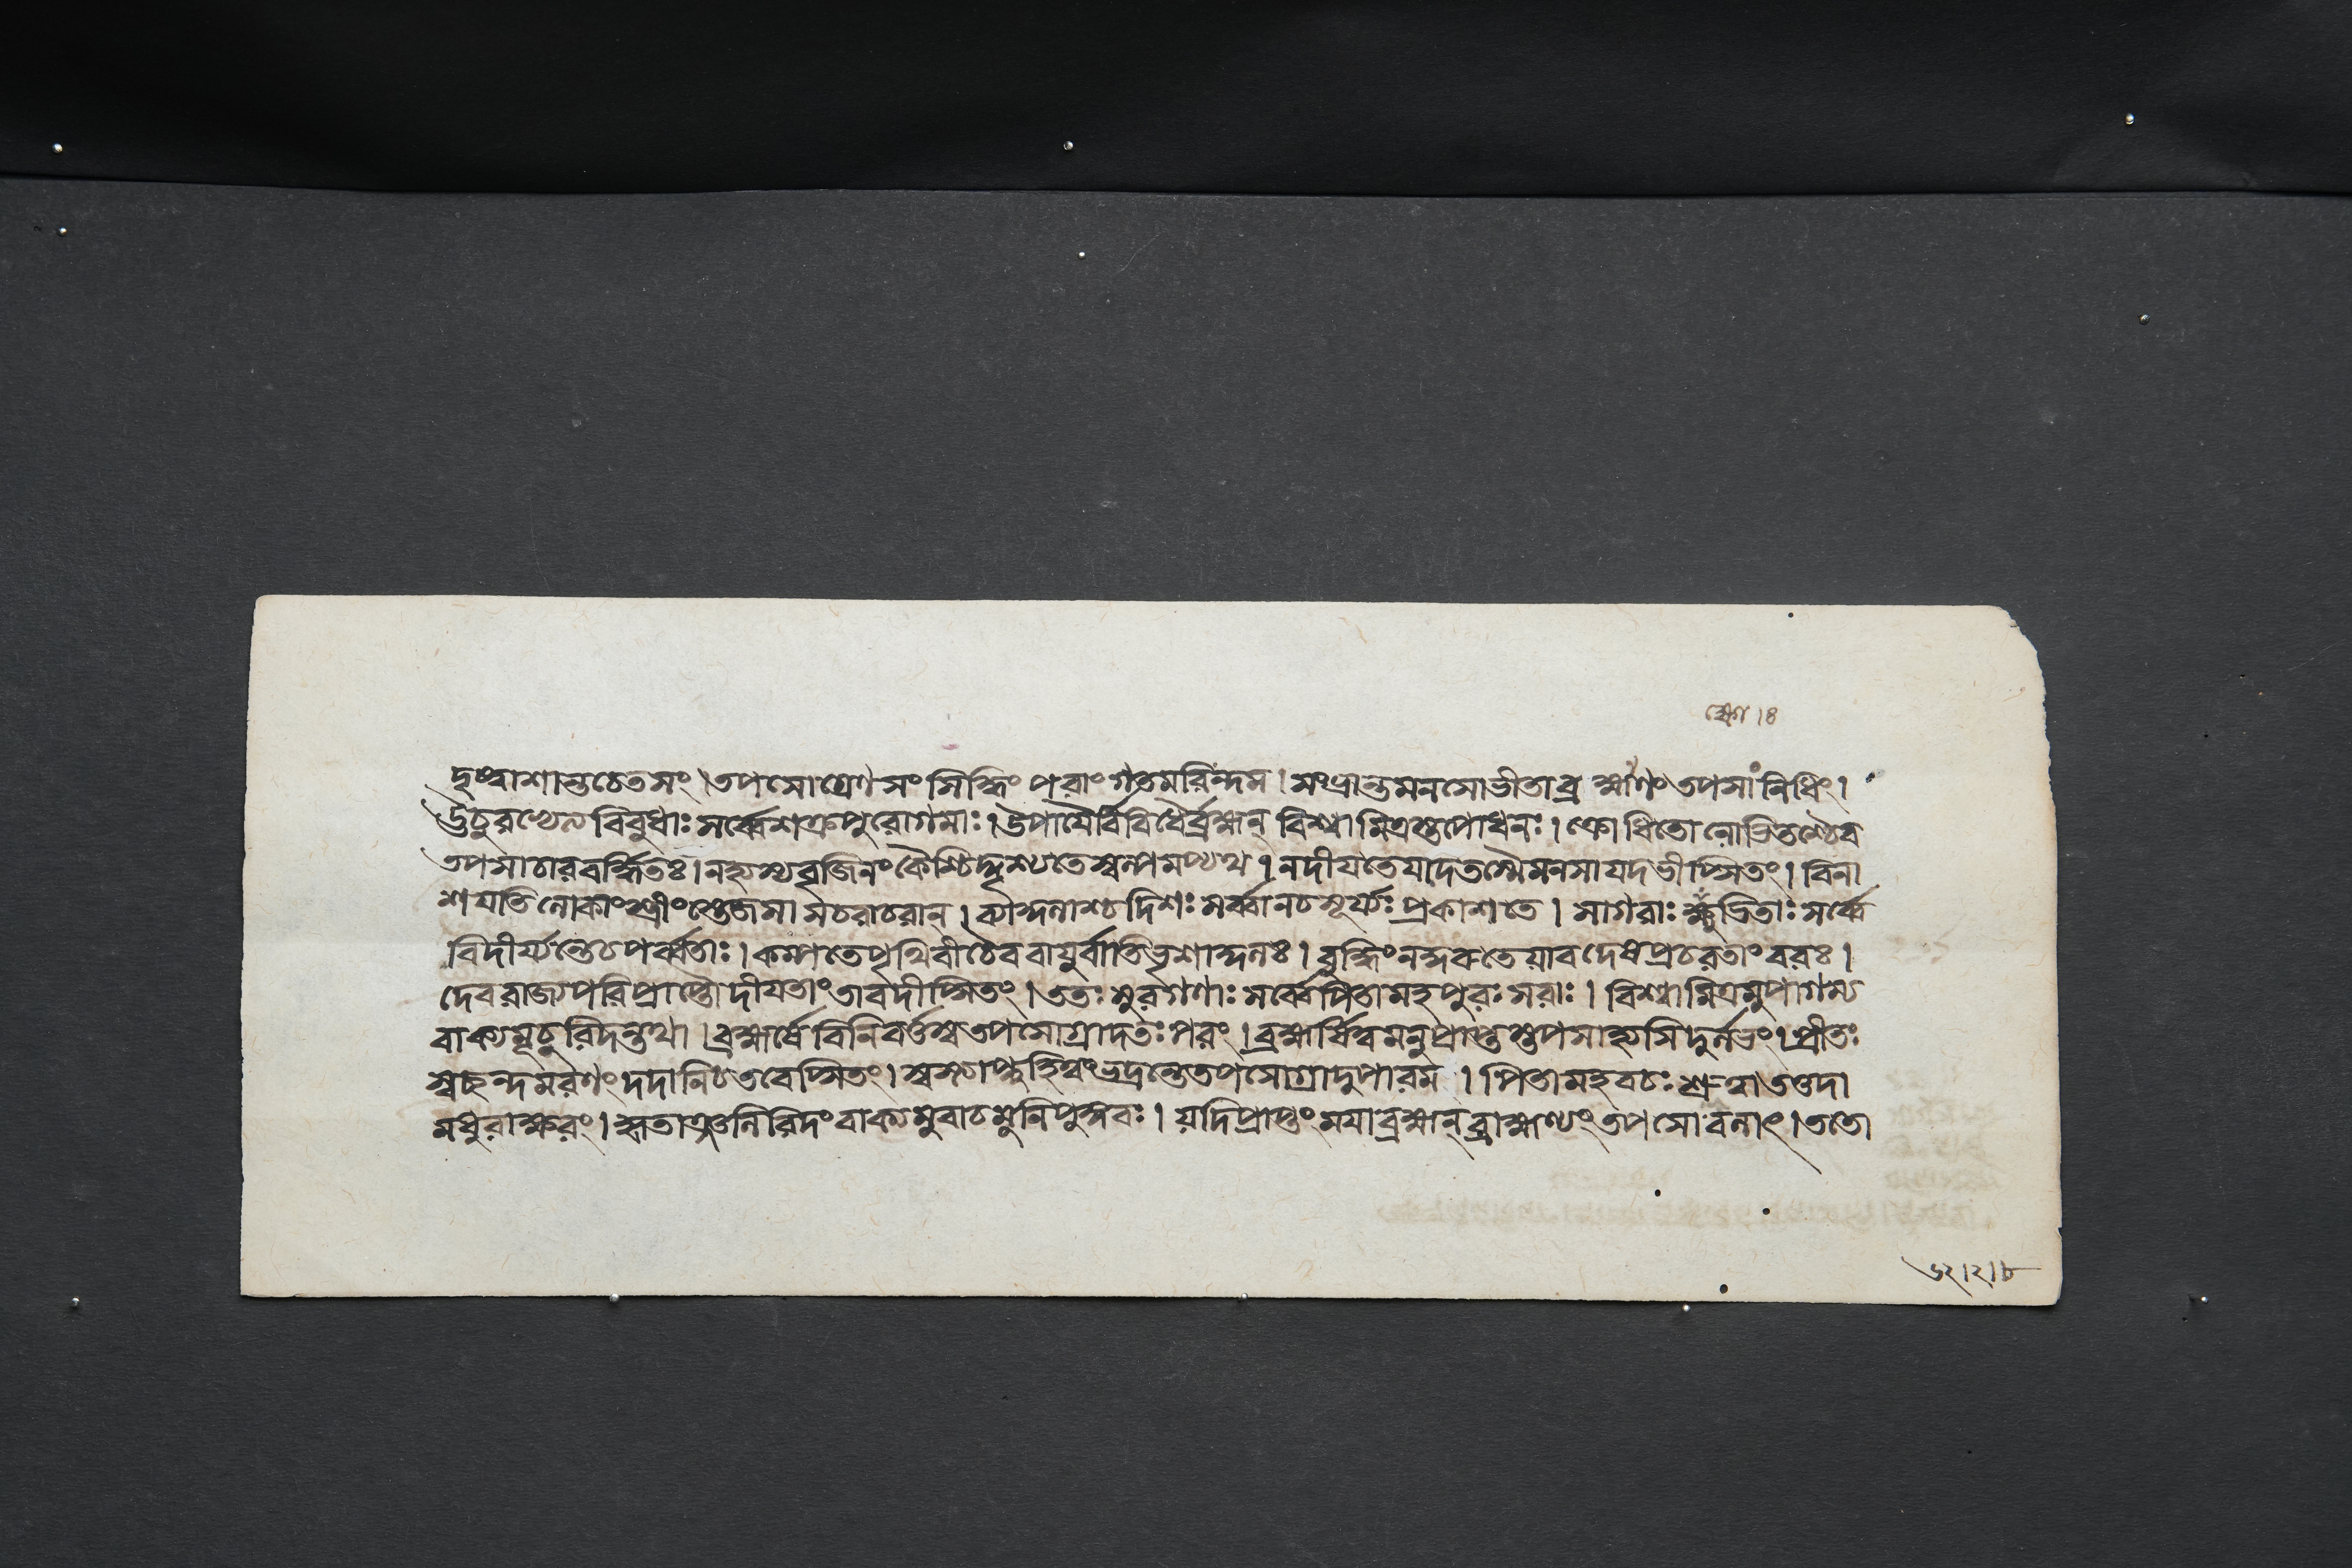 দৃষ্ট্বাশান্তচেতসং।তপসোগ্রেণ সংসিদ্ধিং পরাং গতমরিন্দম। সংভ্রান্তমনসোভীতাব্রহ্মাণং তপসাং নিধিং।
ঊচুরথেন বিবুধাঃ সর্ব্বেশক্রপুরোগমাঃ। উপায়ৈর্বিবিধৈর্ব্রহ্মন্ বিশ্বামিত্রস্তপোধনঃ। ক্রোধিতোলোভিতশ্চৈব
তপসাচারবর্দ্ধিতঃ। নহ্যস্যবৃজিনং কৈশ্চিদ্দৃশ্যতেস্বল্পমপ্যথ। নদীয়তেযদেতস্মৈমনসাযদভীপ্সিতং। বিনা
শয়তিলোকাংস্ত্রীংস্তেজসা সচরাচরান্। ব্যাকুলাশ্চদিশঃ সর্ব্বানচসূর্য্যঃ প্রকাশতে। সাগরাঃ ক্ষুভিতাঃ সর্ব্বে
বিদীর্য্যন্তেচপর্ব্বতাঃ। কম্পতেপৃথিবীচৈববায়ুর্বাতিভৃশাকুলঃ। বুদ্ধিংনকুরুতেয়াবদেষপ্রচরতাং বরঃ।
দেবরাজ্যপরিপ্রাপ্তৌদীয়তাং তাবদীপ্সিতং। ততঃ সুরগণাঃ সর্ব্বেপিতামহপুরঃসরাঃ। বিশ্বামিত্রমুপাগম্য
বাক্যমূচুরিদন্তথা। ব্রহ্মর্ষেবিনিবর্ত্তস্বতপসোগ্রাদতঃপরং। ব্রহ্মর্ষিত্বমনুপ্রাপ্তস্তপসাহ্যসিদুর্লভং। প্রীতঃ
স্বচ্ছন্দমরণং দদানিচতবেপ্সিতং। স্বস্তিপ্রাপ্নুহিত্বংভদ্রন্তেতপসোগ্রাদুপারম। পিতামহবচঃ শ্রুত্বাতত্তদা
মধুরাক্ষরং। কৃতাঞ্জলিরিদং বাক্যমুবাচমুনিপুঙ্গবঃ। যদিপ্রাপ্তং ময়াব্রহ্মন্ ব্রাহ্মণ্যং তপসোবলাৎ। ততো